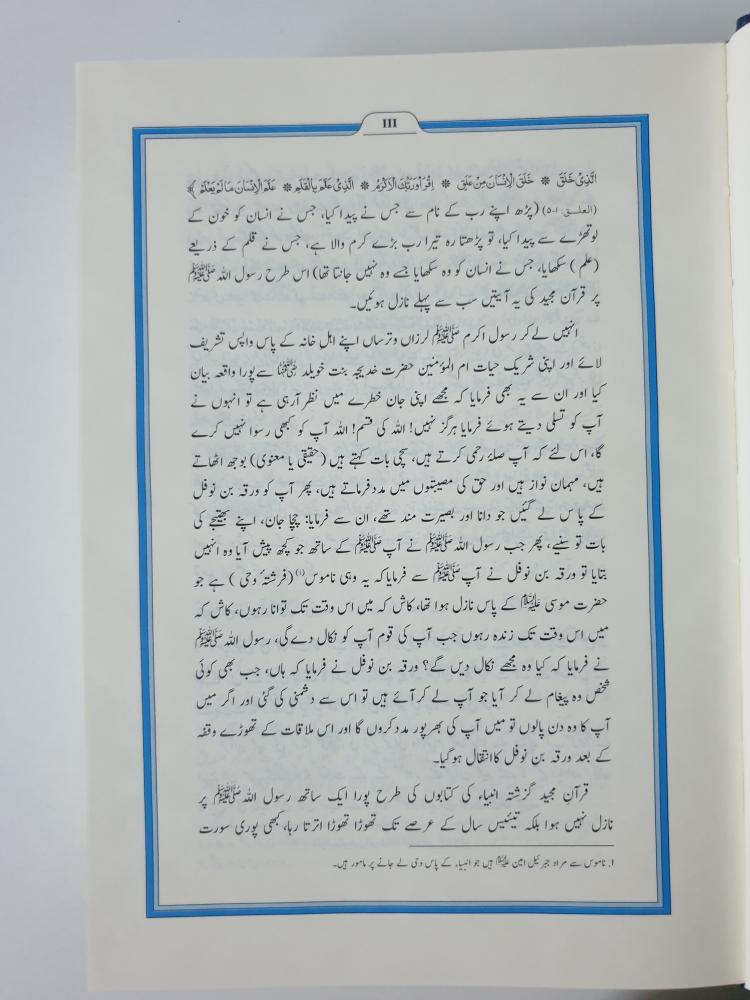 III
الَّذِیْ خَلَقَ ❋ خَلَقَ الْاِنْسَانَ مِنْ عَلَقٍ ❋ اِقْرَاْ وَرَبُّكَ الْاَكْرَمُ ❋ الَّذِیْ عَلَّمَ بِالْقَلَمِ ❋ عَلَّمَ الْاِنْسَانَ مَا لَمْ یَعْلَمْ ﴾
(العلـق: ۱-۵) (پڑھ اپنے رب کے نام سے جس نے پیدا کیا، جس نے انسان کو خون کے
لوتھڑے سے پیدا کیا، تو پڑھتا رہ تیرا رب بڑے کرم والا ہے، جس نے قلم کے ذریعے
(علم) سکھایا، جس نے انسان کو وہ سکھایا جسے وہ نہیں جانتا تھا) اس طرح رسول اللہ ﷺ
پر قرآن مجید کی یہ آیتیں سب سے پہلے نازل ہوئیں۔
انہیں لے کر رسول اکرم ﷺ لرزاں وترساں اپنے اہل خانہ کے پاس واپس تشریف
لائے اور اپنی شریک حیات ام المؤمنین حضرت خدیجہ بنت خویلد رضی اللہ عنہا سے پورا واقعہ بیان
کیا اور ان سے یہ بھی فرمایا کہ مجھے اپنی جان خطرے میں نظر آرہی ہے تو انہوں نے
آپ کو تسلی دیتے ہوئے فرمایا ہرگز نہیں! اللہ کی قسم! اللہ آپ کو کبھی رسوا نہیں کرے
گا، اس لئے کہ آپ صلۂ رحمی کرتے ہیں، سچی بات کہتے ہیں (حقیقی یا معنوی) بوجھ اٹھاتے
ہیں، مہمان نواز ہیں اور حق کی مصیبتوں میں مدد فرماتے ہیں، پھر آپ کو ورقہ بن نوفل
کے پاس لے گئیں جو دانا اور بصیرت مند تھے، ان سے فرمایا: چچا جان، اپنے بھتیجے کی
بات تو سنیے، پھر جب رسول اللہ ﷺ نے آپ ﷺ کے ساتھ جو کچھ پیش آیا وہ انہیں
بتایا تو ورقہ بن نوفل نے آپ ﷺ سے فرمایا کہ یہ وہی ناموس(۱) (فرشتۂ وحی) ہے جو
حضرت موسی علیہ السلام کے پاس نازل ہوا تھا، کاش کہ میں اس وقت تک توانا رہوں، کاش کہ
میں اس وقت تک زندہ رہوں جب آپ کی قوم آپ کو نکال دے گی، رسول اللہ ﷺ
نے فرمایا کہ کیا وہ مجھے نکال دیں گے؟ ورقہ بن نوفل نے فرمایا کہ ہاں، جب بھی کوئی
شخص وہ پیغام لے کر آیا جو آپ لے کر آئے ہیں تو اس سے دشمنی کی گئی اور اگر میں
آپ کا وہ دن پالوں تو میں آپ کی بھرپور مدد کروں گا اور اس ملاقات کے تھوڑے وقفہ
کے بعد ورقہ بن نوفل کا انتقال ہوگیا۔
قرآنِ مجید گزشتہ انبیاء کی کتابوں کی طرح پورا ایک ساتھ رسول اللہ ﷺ پر
نازل نہیں ہوا بلکہ تیئیس سال کے عرصے تک تھوڑا تھوڑا اترتا رہا، کبھی پوری سورت
۱. ناموس سے مراد جبرئیل امین علیہ السلام ہیں جو انبیاء کے پاس وحی لے جانے پر مامور ہیں۔